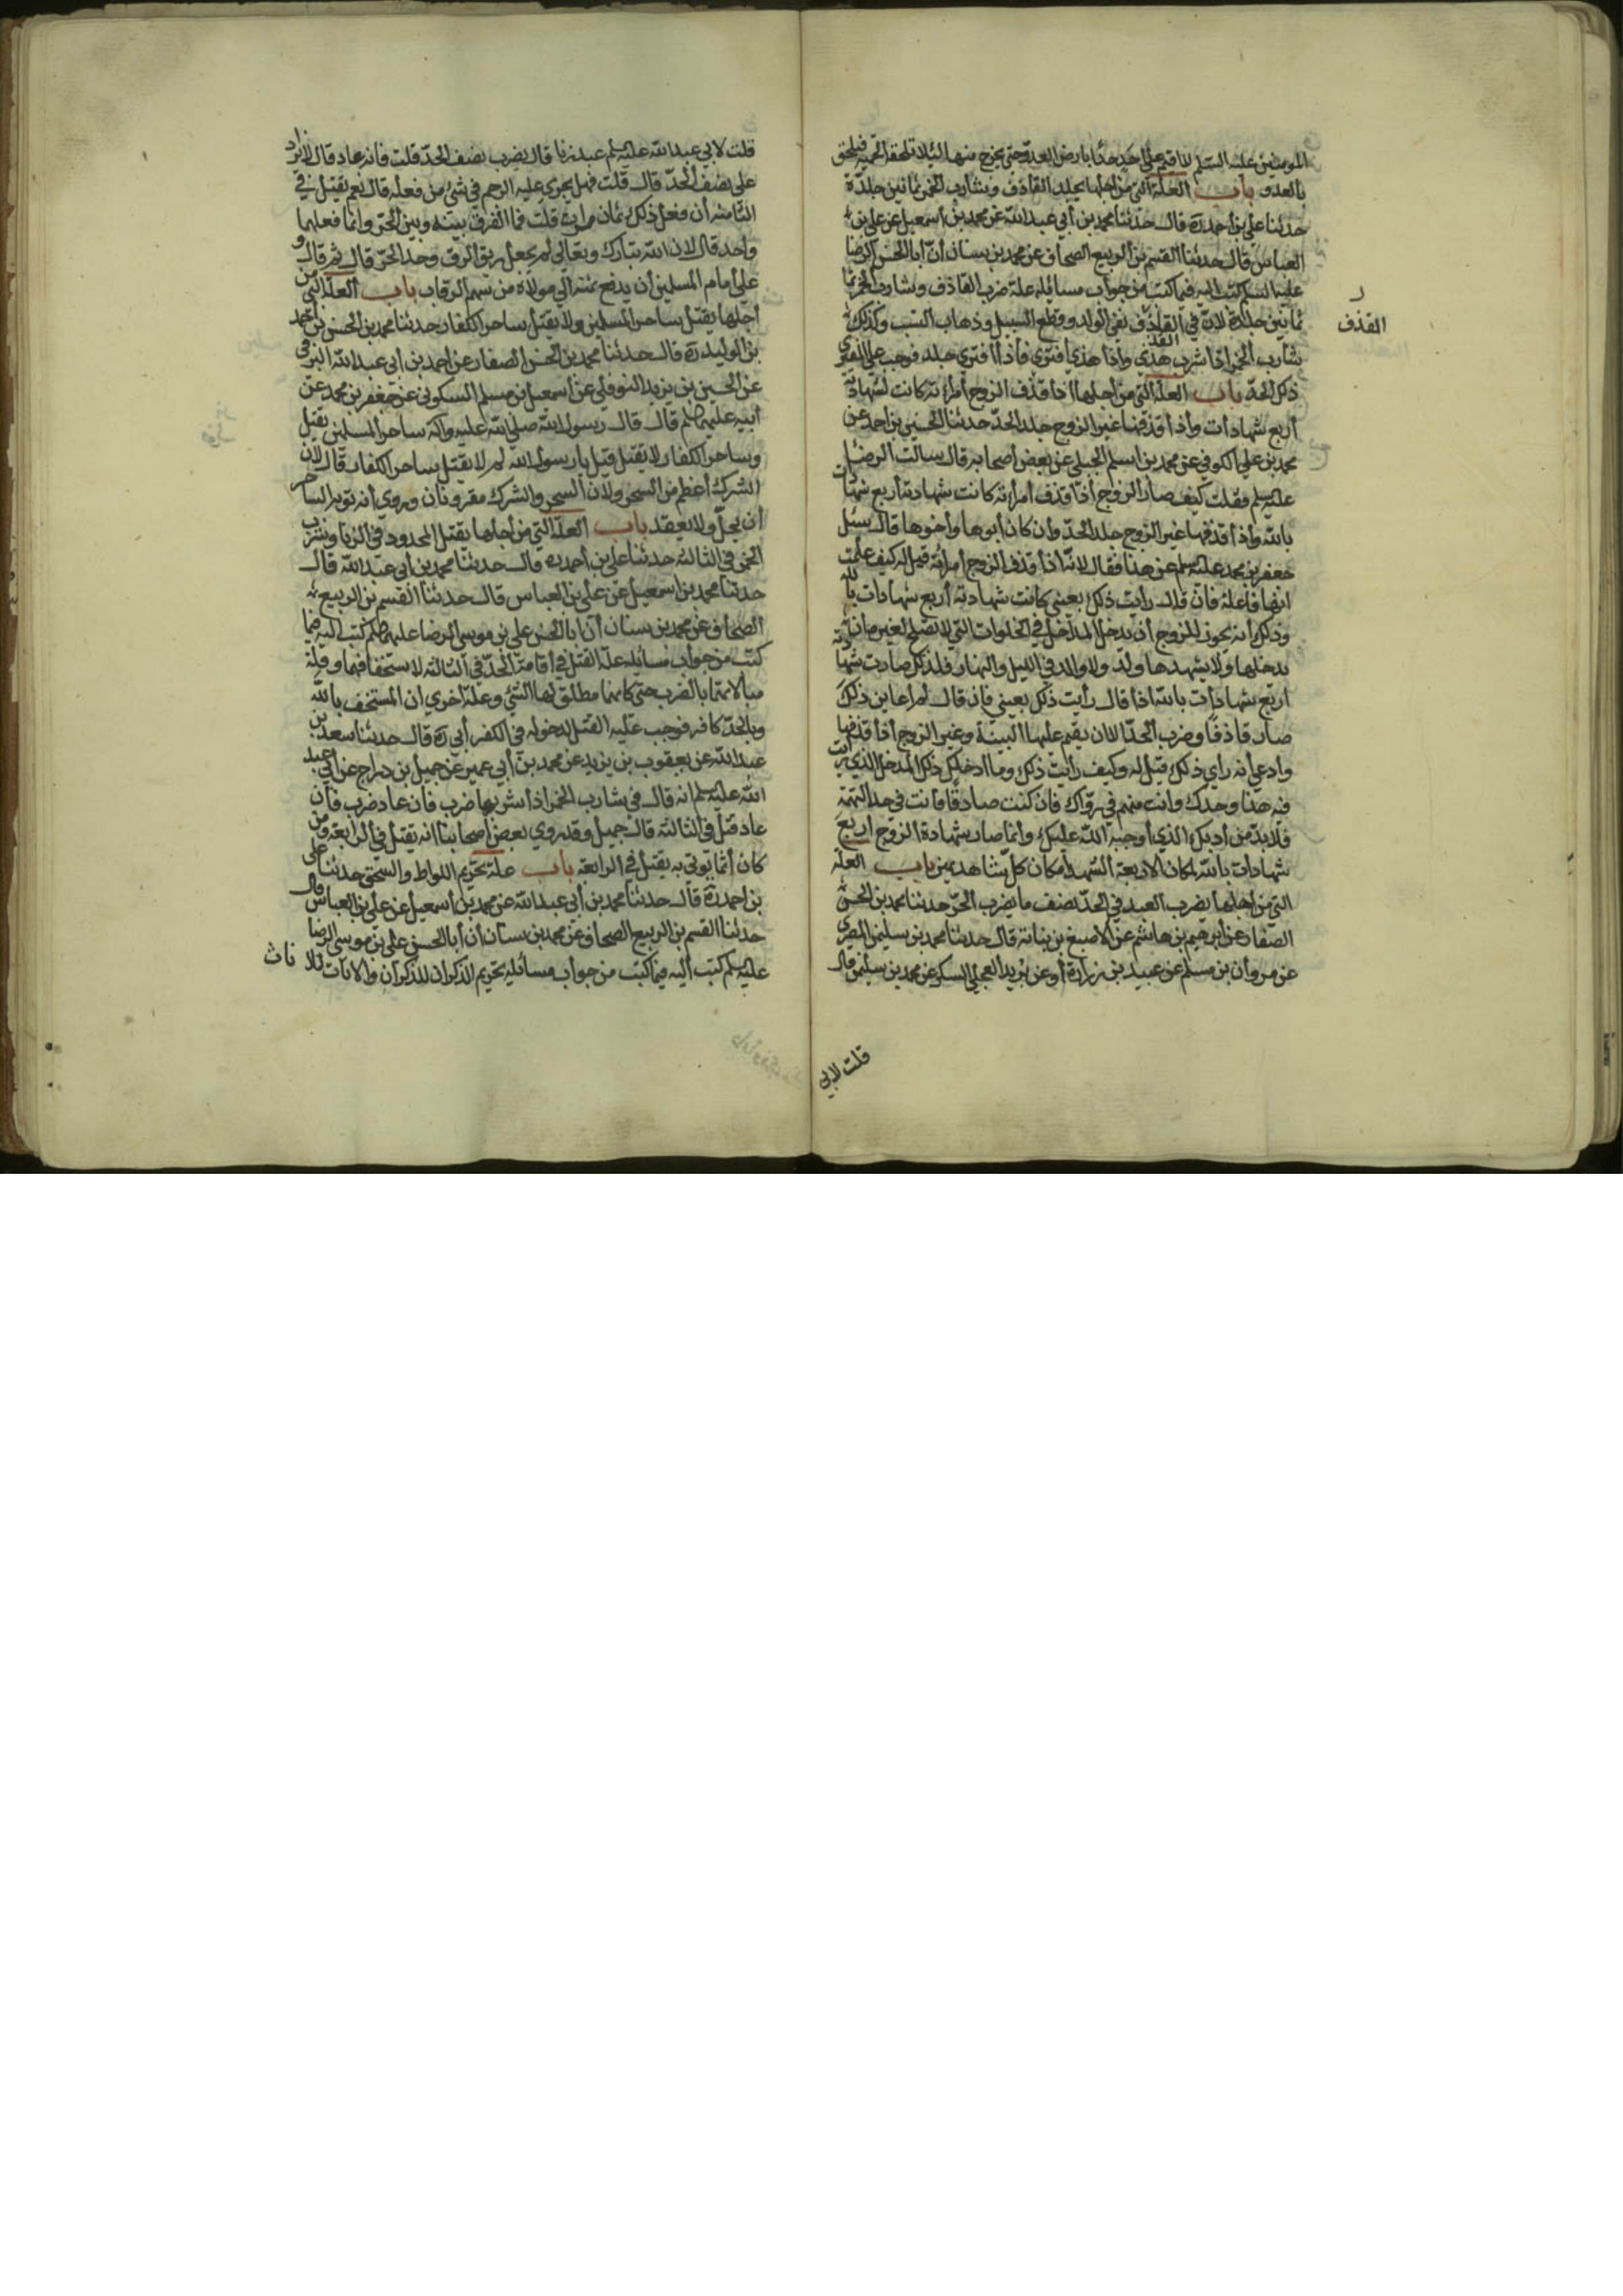 المومنين عليه السلم لا اقيم على احد حدا بارض العدو حتى يخرج منها لئلا تلحقه الحمية فيلحق
بالعدو باب العلة التي من اجلها يجلد القاذف وشارب الخمر ثمانين جلدة
حدثنا علي بن احمد ره قال حدثنا محمد بن أبي عبد الله عن محمد بن أسمعيل عن علي بن
العباس قال حدثنا القسم بن الربيع الصحاف عن محمد بن سنان أن أبا الحسن الرضا
عليه السلم كتب اليه فيما كتب من جواب مسائله علة ضرب القاذف وشارب الخمر ثما
نين جلدة لان في القاذف نفي الولد وقطع السبيل وذهاب النسب وكذلك
القذف
شارب الخمر اذا شرب هذي واذا هذي افتري فاذا افتري جلد فوجب عليه المفتري
ذلك الحد باب العلة التي من اجلها اذا قذف الزوج أمرأته كانت شهادته
أربع شهادات وأذا قذفها غير الزوج جلد الحد حدثنا الحسين بن احمد عن
محمد بن علي الكوفي عن محمد بن اسلم الجبلي عن بعض أصحابه قال سالت الرضا
عليه سلم فقلت كيف صار الزوج أذا قذف أمرأته كانت شهادته أربع شهادات
بالله وأذا قذفها غير الزوج جلد الحد وان كان أبوها وأخوها قال سئل
جعفر بن محمد عليه سلم عن هذا فقال لانه اذا قذف الزوج أمرأته قيل له كيف علمت
انها فاعلة فان قال رأيت ذلك بعيني كانت شهادته أربع شهادات بالله
وذلك أنه يجوز للزوج أن يدخل المدخل في الخلوات التي لا تصلح لغيره ان
يدخلها ولا يشهدها ولد ولا والد في الليل والنهار فلذلك صارت شهادته
اربع شهادات بالله اذا قال رأيت ذلك بعيني فان قال لم اعاين ذلك
صار قاذفا وضرب الحد الا ان يقيم عليها البينة وغير الزوج أذا قذفها
وادعي أنه راي ذلك قيل له وكيف رأيت ذلك وما ادخلك ذلك المدخل الذي رأيت
فيه هذا وحدك وانت متهم في رؤاك فان كنت صادقا فأنت في حد التهمة
فلا بد من أدبك الذي أوجبه الله عليك وانما صار شهادة الزوج اربع
شهادات بالله لمكان الاربعة الشهداء مكان كل شاهد يمين باب العلة
التي من اجلها يضرب العبد في الحد نصف ما يضرب الحر حدثنا محمد بن الحسن
الصفار عن أبرهيم بن هاشم عن الاصبغ بن نباتة قال حدثنا محمد بن سليمن المصري
عن مروان بن مسلم عن عبيد بن زرارة أو عن بريد العجلي السكر عن محمد بن سليمن قال
قلت لابي
قلت لابي عبد الله عليه سلم عبد زنا قال يضرب نصف الحد قلت فانه عاد قال لا يزاد
على نصف الحد قال قلت فهل يجري عليه الرجم في شئ من فعله قال نعم يقتل في
الثامنة أن فعل ذلك ثمان مرات قلت فما الفرق بينه وبين الحر وانما فعلهما
واحد قال لان الله تبارك وتعالى لم يجعل ربق الرق وحد الحر قال ثم قال و
على أمام المسلمين أن يدفع ثمنه الي مولاه من سهم الرقاب باب العلة التي من
أجلها يقتل ساحر المسلمين ولا يقتل ساحر الكفار حدثنا محمد بن الحسن بن أحمد
بن الوليد ره قال حدثنا محمد بن الحسن الصفار عن احمد بن ابي عبد الله البرقي
عن الحسين بن يزيد النوفلي عن أسمعيل بن مسلم السكوني عن جعفر بن محمد عن
أبيه عليهما سلم قال قال رسول الله صلى الله عليه واله ساحر المسلمين يقتل
وساحر الكفار لا يقتل قيل يا رسول الله لم لا يقتل ساحر الكفار قال لان
الشرك أعظم من السحر ولان السحر والشرك مقرونان وروي أنه توبه الساحر
أن يحل ولا يعقد باب العلة التي من أجلها يقتل المحدود في الزنا وشرب
الخمر في الثالثة حدثنا علي بن أحمد ره قال حدثنا محمد بن أبي عبد الله قال
حدثنا محمد بن اسمعيل عن علي بن العباس قال حدثنا القسم بن الربيع
الصحاف عن محمد بن سنان أن ابا الحسن علي بن موسى الرضا عليهما سلم كتب اليه فيما
كتب من جواب مسائله علة القتل في أقامة الحد في الثالثة لاستخفافهما وقلة
مبالاتهما بالضرب حتى كانهما مطلق لهما الشئ وعلة اخري ان المستخف بالله
وبالحد كافر فوجب عليه القتل لدخوله في الكفر أبي ره قال حدثنا سعد بن
عبد الله عن يعقوب بن يزيد عن محمد بن أبي عمير عن جميل بن دراج عن ابي عبد
الله عليه سلم انه قال في شارب الخمر اذا شربها ضرب فان عاد ضرب فان
عاد قتل في الثالثة قال جميل وقد روي بعض أصحابنا انه يقتل في الرابعة ومن
كان أنما يؤتي به يقتل في الرابعة باب علة تحريم اللواط والسحق حدثنا علي
بن احمد ره قال حدثنا محمد بن أبي عبد الله عن محمد بن أسمعيل عن علي بن العباس قال
حدثنا القسم بن الربيع الصحاف عن محمد بن سنان أن أبا الحسن علي بن موسى الرضا
عليه سلم كتب اليه فيما كتب من جواب مسائله تحريم الذكران للذكران والاناث للاناث